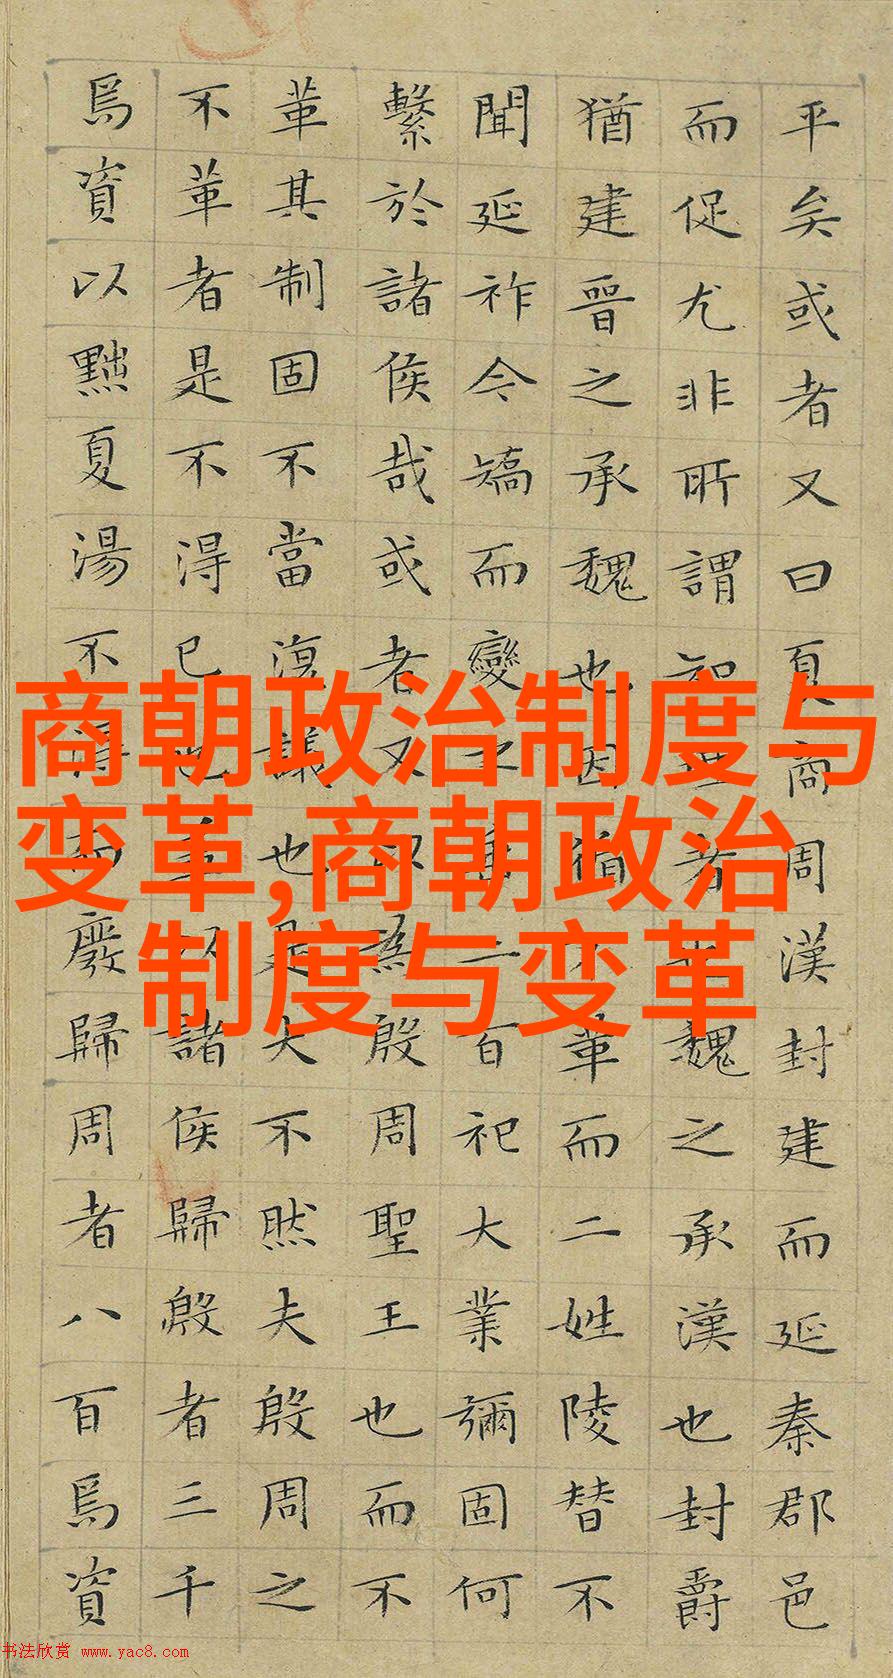 平矣或者又曰夏商周漢封建而延秦郡邑
而促尤非所謂知理者也魏之承漢也封爵
猶建晉之承魏也因循不革而二姓陵替不
聞延祚今矯而變之垂二百祀大業彌固何
繫於諸侯哉或者又以為殷周聖王也而不
革其制固不當復議也是大不然夫殷周之
不革者是不得已也蓋以諸侯歸殷者三千
焉資以黜夏湯不得而廢歸周者八百焉資
商朝政治制度与
变革,商朝政治
制度与变革
书法欣赏 www.yac8.com